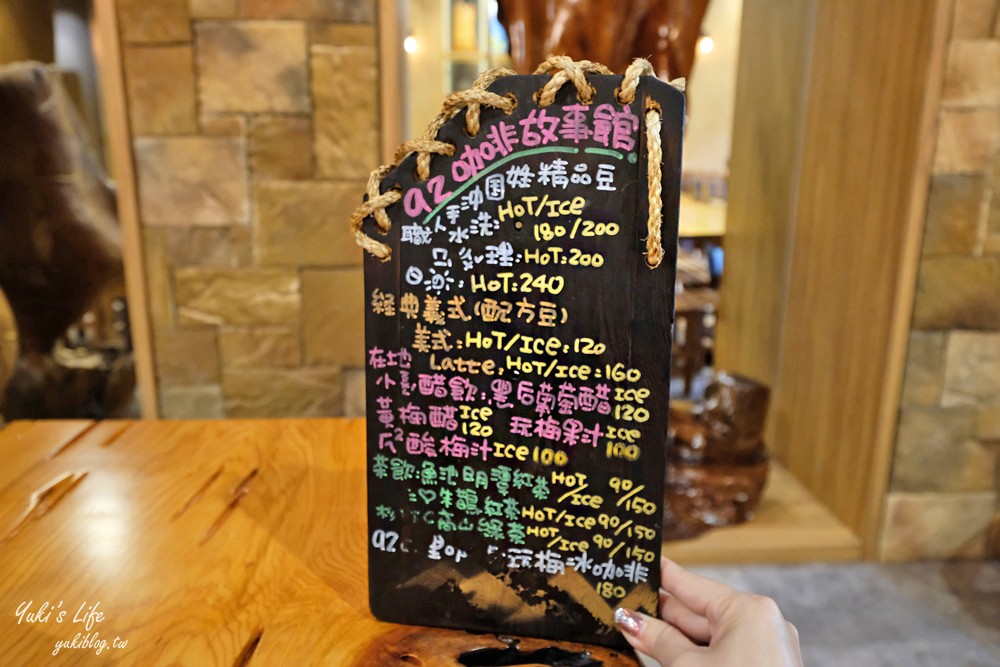 92咖啡故事館
職人手沖国姓精品豆
水洗: HOT/ICe 180/200
処理: HOT:200
日 HOT:240
経典義式(配方豆)
美式:HOT/ICe:120
Latte,HOT/ICe:160
在地小 醋飲:黑后葡萄醋ICe 120
黃梅醋ICe 120 玩梅果汁ICe 100
酸梅汁ICe100
茶飲:魚池日月潭紅茶HOT/ICe 90/150
紅茶HOT/ICe90/150
高山綠茶HOT/ICe90/150
92 玩梅冰咖啡 180
Yuki's Life
yukiblog.tw